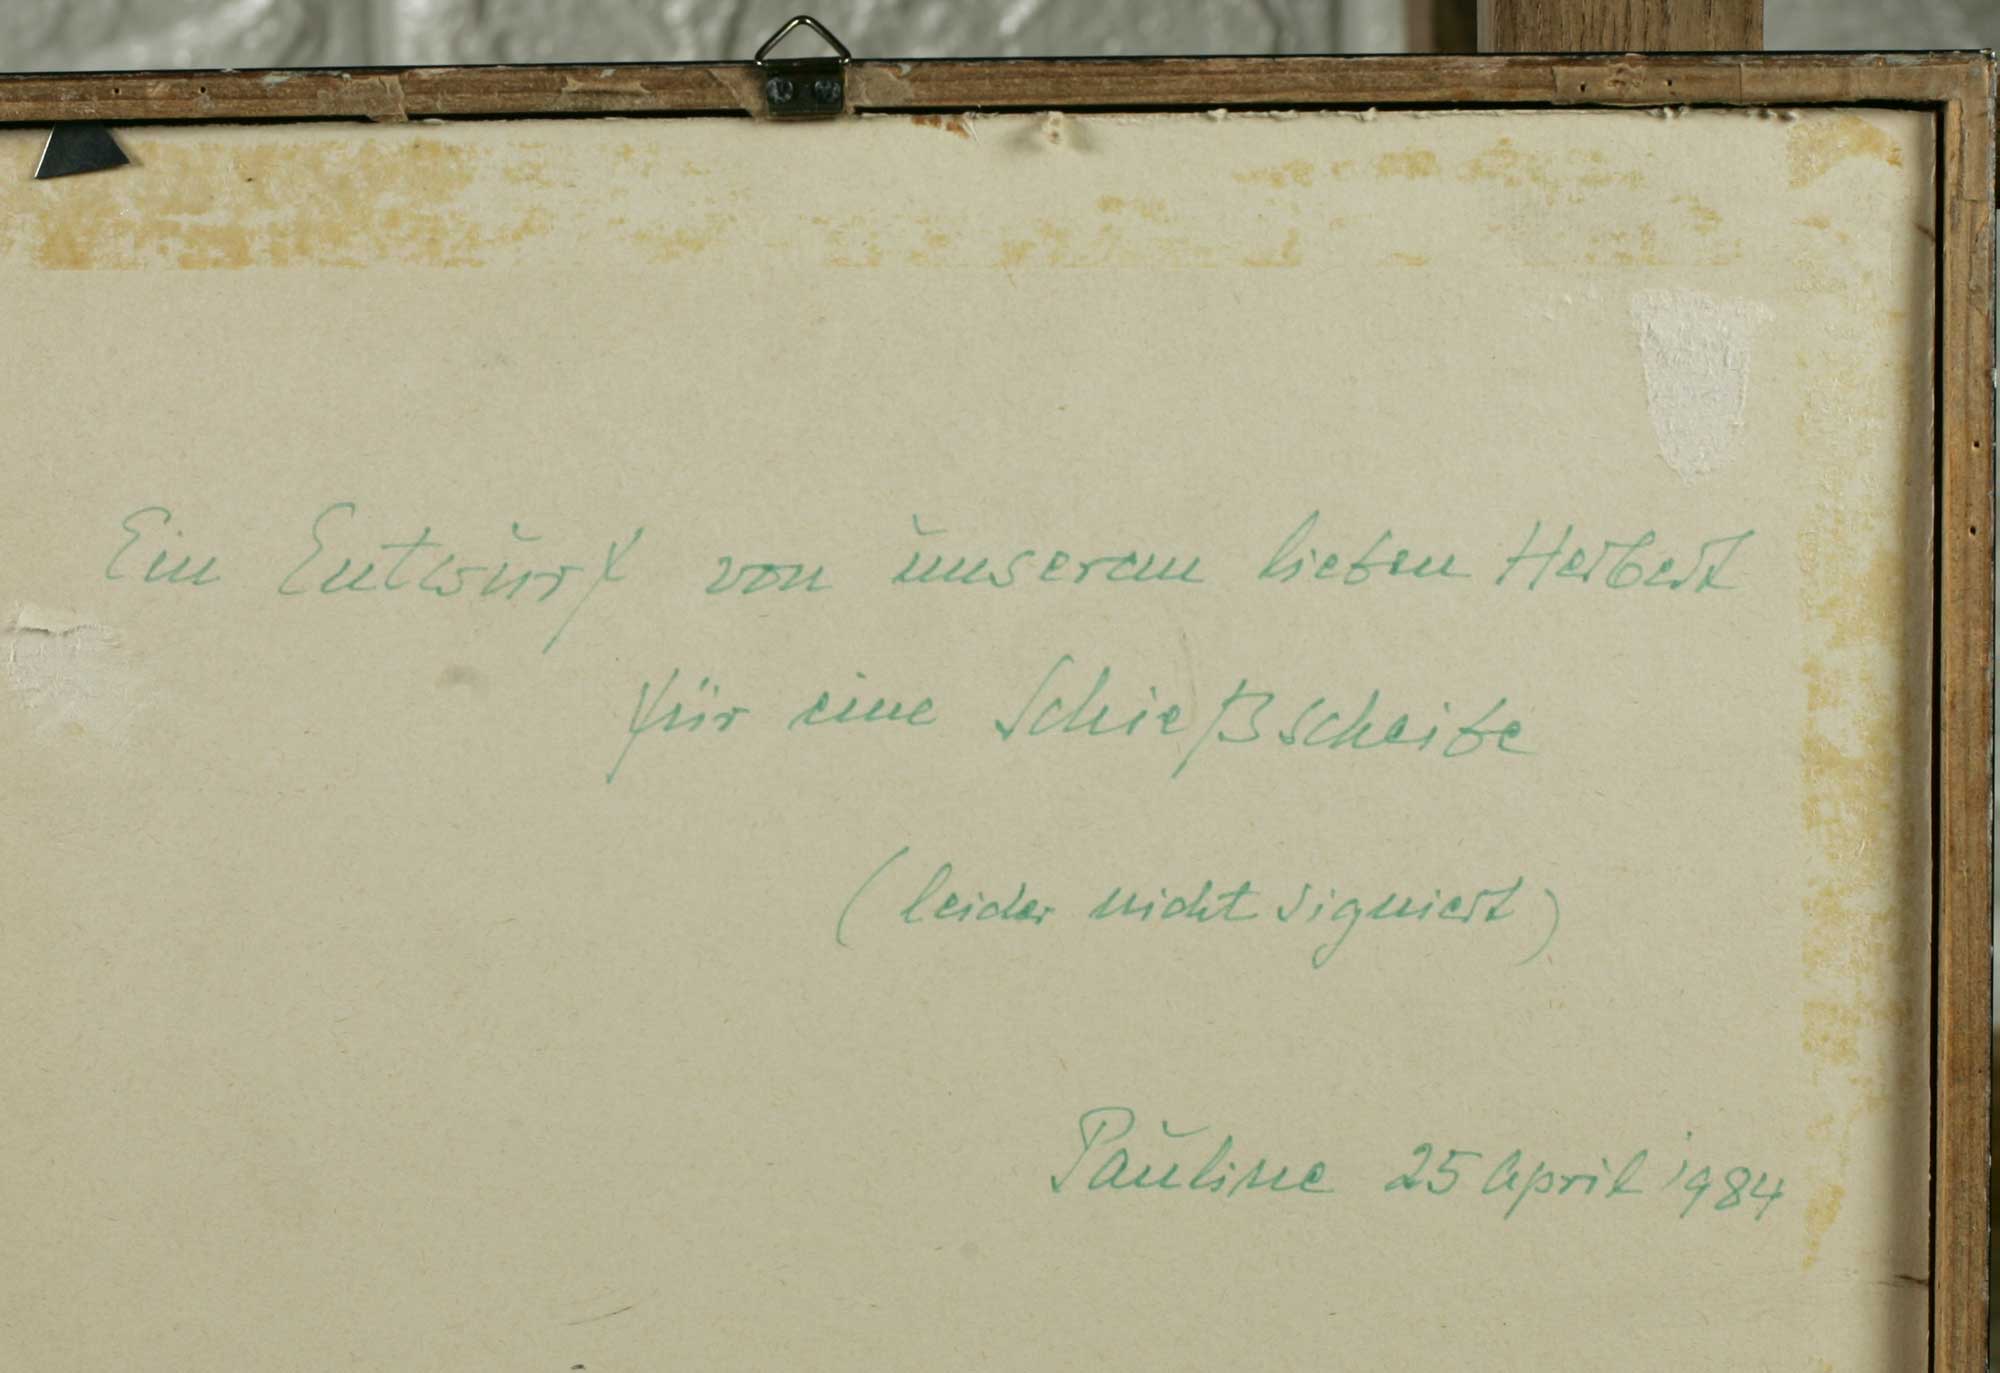 Ein Entwurf von unserem lieben Herbert
für eine Schießscheibe
(leider nicht signiert)
Pauline 25 April 1984